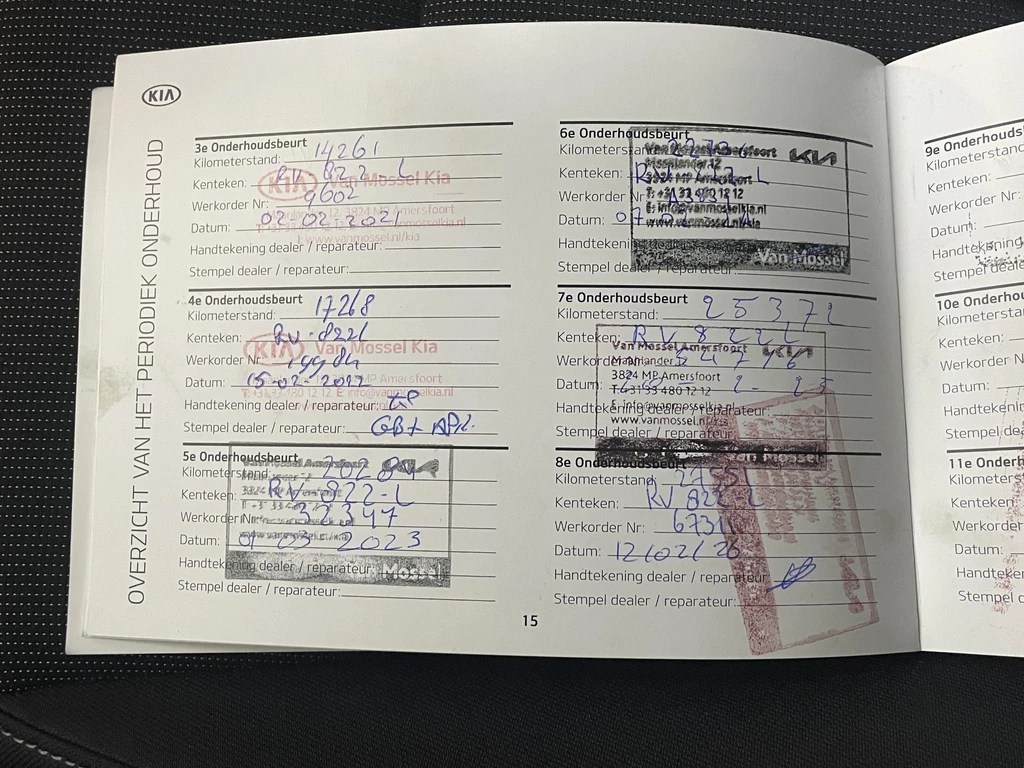 KIA
OVERZICHT VAN HET PERIODIEK ONDERHOUD
3e Onderhoudsbeurt
Kilometerstand: 14261
Kenteken: RV 822-L
Werkorder Nr: 9602
Datum: 02-02-2021
Handtekening dealer / reparateur:
Stempel dealer / reparateur:
KIA Van Mossel Kia
3824 MP Amersfoort
www.vanmosselkia.nl/kia
4e Onderhoudsbeurt
Kilometerstand: 17268
Kenteken: RV-822L
Werkorder Nr:
Datum: 15-02-2022
Handtekening dealer / reparateur:
Stempel dealer / reparateur:
KIA Van Mossel Kia
MP Amersfoort
5e Onderhoudsbeurt
Kilometerstand:
Kenteken: RV-822-L
Werkorder Nr: 32347
Datum: 01-03-2023
Handtekening dealer / reparateur:
Mossel
Stempel dealer / reparateur:
6e Onderhoudsbeurt
Kilometerstand:
Kenteken:
Werkorder Nr:
Datum:
Handtekening
Stempel dealer / reparateur:
Van Mossel Amersfoort KIA
3824 MP Amersfoort
T: +31 33 480 12 12
E: info@vanmosselkia.nl
www.vanmossel.nl/kia
Van Mossel
7e Onderhoudsbeurt
Kilometerstand: 25372
Kenteken: RV 822L
Werkorder Nr:
Datum:
Handtekening dealer / reparateur:
Stempel dealer / reparateur:
Van Mossel Amersfoort KIA
3824 MP Amersfoort
T: +31 33 480 12 12
www.vanmossel.nl/kia
8e Onderhoudsbeurt
Kilometerstand: 27551
Kenteken: RV 822-L
Werkorder Nr:
Datum: 12/02/26
Handtekening dealer / reparateur:
Stempel dealer / reparateur:
15
9e Onderhouds
Kilometerstand
Kenteken:
Werkorder Nr
Datum:
Handtekening
Stempel deale
10e Onderhou
Kilometerstan
Kenteken:
Werkorder N
Datum:
Handtekenin
Stempel dea
11e Onderh
Kilometers
Kenteken
Werkorder
Datum:
Handteken
Stempel d